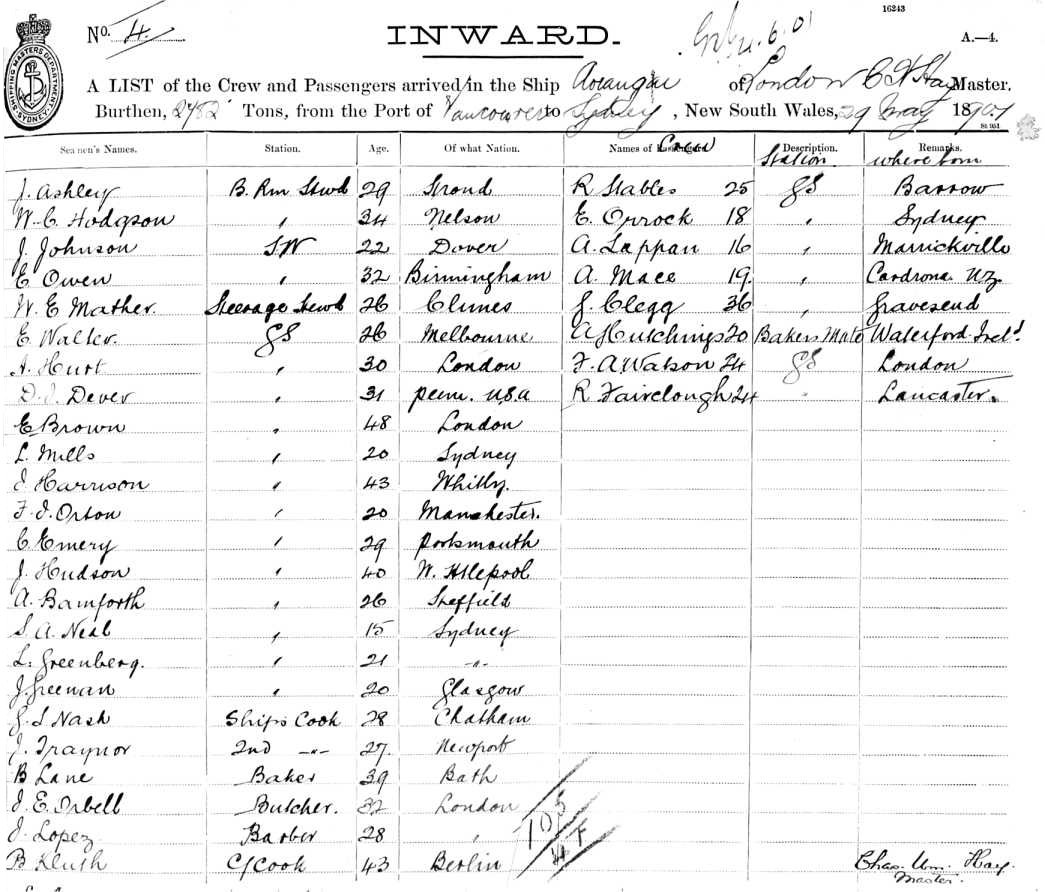 16243
SHIPPING MASTERS DEPARTMENT SYDNEY
No. 4 INWARD. A.—4.
A LIST of the Crew and Passengers arrived in the Ship Aorangi of London C W Hay Master.
Burthen, 2782 Tons, from the Port of Vancouver to Sydney, New South Wales, 29 May 1901
St 951
Seamen's Names. Station. Age. Of what Nation. Names of Passengers. Crew Description. Station Remarks. where born
J. Ashley B. Rm Stwd 29 Strood R Stables 25 GS Barrow
W. C. Hodgson " 34 Nelson E. Orrock 18 " Sydney
J. Johnson S.W 22 Dover A. Lappan 16 " Marrickville
E Owen " 32 Birmingham A. Mace 19. " Cardrona NZ
W. E Mather. Steerage Stewd 26 Clunes J. Clegg 36 " Gravesend
E. Walter. GS 26 Melbourne A Hutchings 20 Bakers Mate Waterford Ireld.
A. Hurt " 30 London F. A Watson 24 GS London
D. J. Dever " 31 penn. U.S.A R Fairclough 24 " Lancaster.
E Brown " 48 London
L. Mills " 20 Sydney
J Harrison " 43 Whitby.
F. J. Orton " 20 Manchester.
C. Emery " 29 Portsmouth
J. Hudson " 40 W. Htlepool
A. Bamforth " 26 Sheffield
S. A. Neal " 15 Sydney
L. Greenberg. " 21 -"-
J. Greenan " 20 Glasgow
G. S Nash Ships Cook 28 Chatham
J. Traynor 2nd -"- 27. Newport
B Lane Baker 39 Bath
J. E. Orbell Butcher. 32 London
J. Lopez Barber 28 "
B Kluth C/Cook 43 Berlin
105
4 F
Chas. Wm. Hay.
Master.